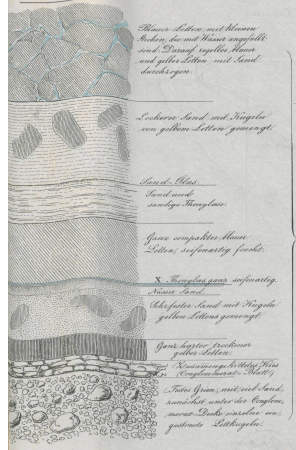 Blauer Letten mit kleinen
die mit Wasser angefüllt
sind. Darauf
und gelber Letten mit Sand
durchzogen.
Lockerer Sand mit Kugeln
von gelbem Letten gemengt.
Sand
Sand und
sandige
Ganz compakter blauer
Letten, seifenartig feucht.
X ganz seifenartig.
Nasser Sand
Sehr fester Sand mit Kugeln
gelben Lettens gemengt.
Ganz harter, trockener
gelber Letten
Kies
(Conglomerat-
mit viel Sand,
zunächst unter der Conglom-
merat-Decke einzelne ein-
gestreute Lettkugeln.